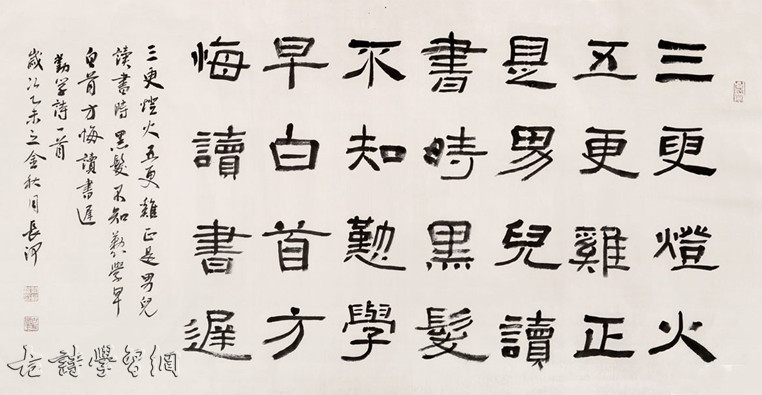 三更燈火
五更雞正
是男兒讀
書時黑髮
不知勤學
早白首方
悔讀書遲
三更燈火五更雞正是男兒
讀書時黑髮不知勤學早
白首方悔讀書遲
勸學詩一首
歲次乙未之金秋月長河
學習網